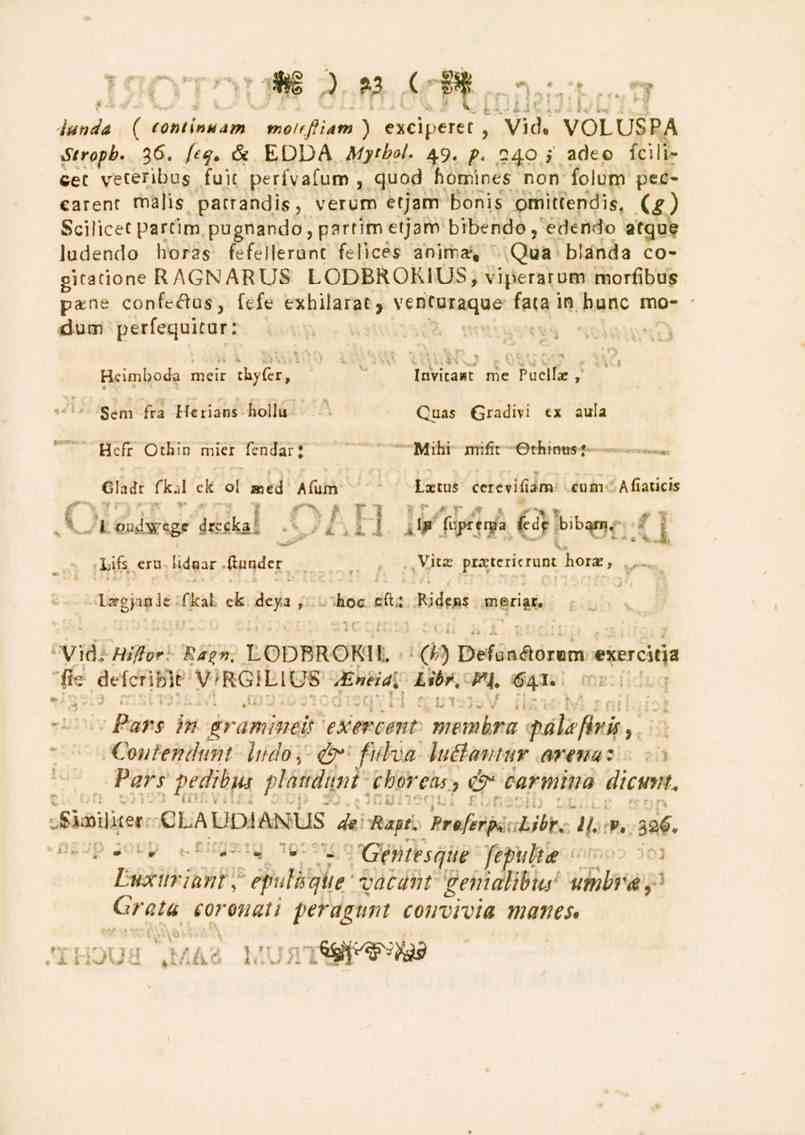 ) 23 (
lunda ( continuam molestiam ) exciperet , Vid. VOLUSPA
Stroph. 36. seq. & EDDA Mythol. 49. p. 240 ; adeo scili-
cet veteribus fuit persvasum , quod homines non solum pec-
carent malis patrandis, verum etjam bonis omittendis. (g)
Scilicet partim pugnando, partim etjam bibendo, edendo atque
ludendo horas fefellerunt felices animæ. Qua blanda co-
gitatione RAGNARUS LODBROKIUS, viperarum morsibus
pæne confectus, sese exhilarat, venturaque fata in hunc mo-
dum persequitur:
Heimboda meir thyser, Invitant me Puellæ ,
Sem fra Herians hollu Quas Gradivi ex aula
Hefr Othin mier sendar; Mihi misit Othinus:
Gladr skal ek ol med Asum Lætus cerevisiam cum Asiaticis
I ondwege drecka In suprema sede bibam.
Lifs eru lidnar stunder Vitæ præterierunt horæ,
Lægjande skal ek deya , hoc est: Ridens moriar.
Vid. Histor. Ragn. LODBROKII. (h) Defunctorum exercitia
sic describit VIRGILIUS Æneid. Libr. VI. 641.
Pars in gramineis exercent membra palæstris,
Contendunt ludo, & fulva luctantur arena:
Pars pedibus plaudunt choreas, & carmina dicunt.
Similiter CLAUDIANUS de Rapt. Proserp. Libr. II. v. 326.
- - - - - - - Gentesque sepultæ
Luxuriant, epulisque vacant genialibus umbræ,
Grata coronati peragunt convivia manes.